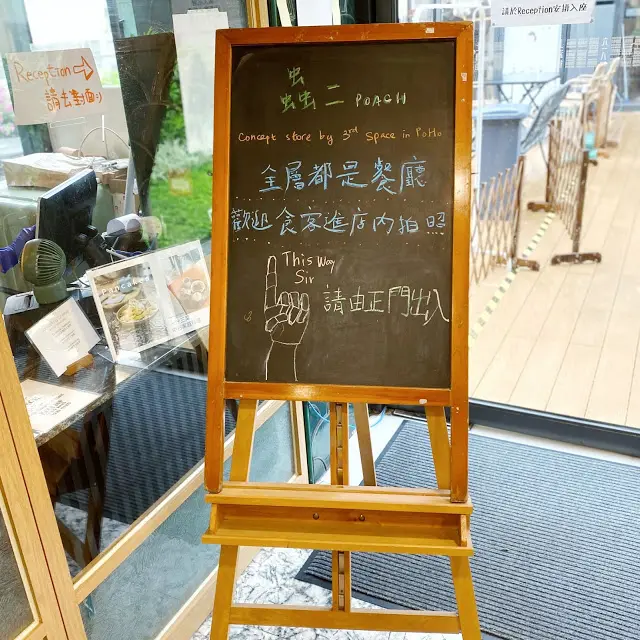 請於Reception安排入座
Reception
請去對面:)
虫
蚰二 POACH
Concept store by 3rd Space in PoHo
全層都是餐廳
歡迎食客進店內拍照
This Way
Sir
請由正門出入